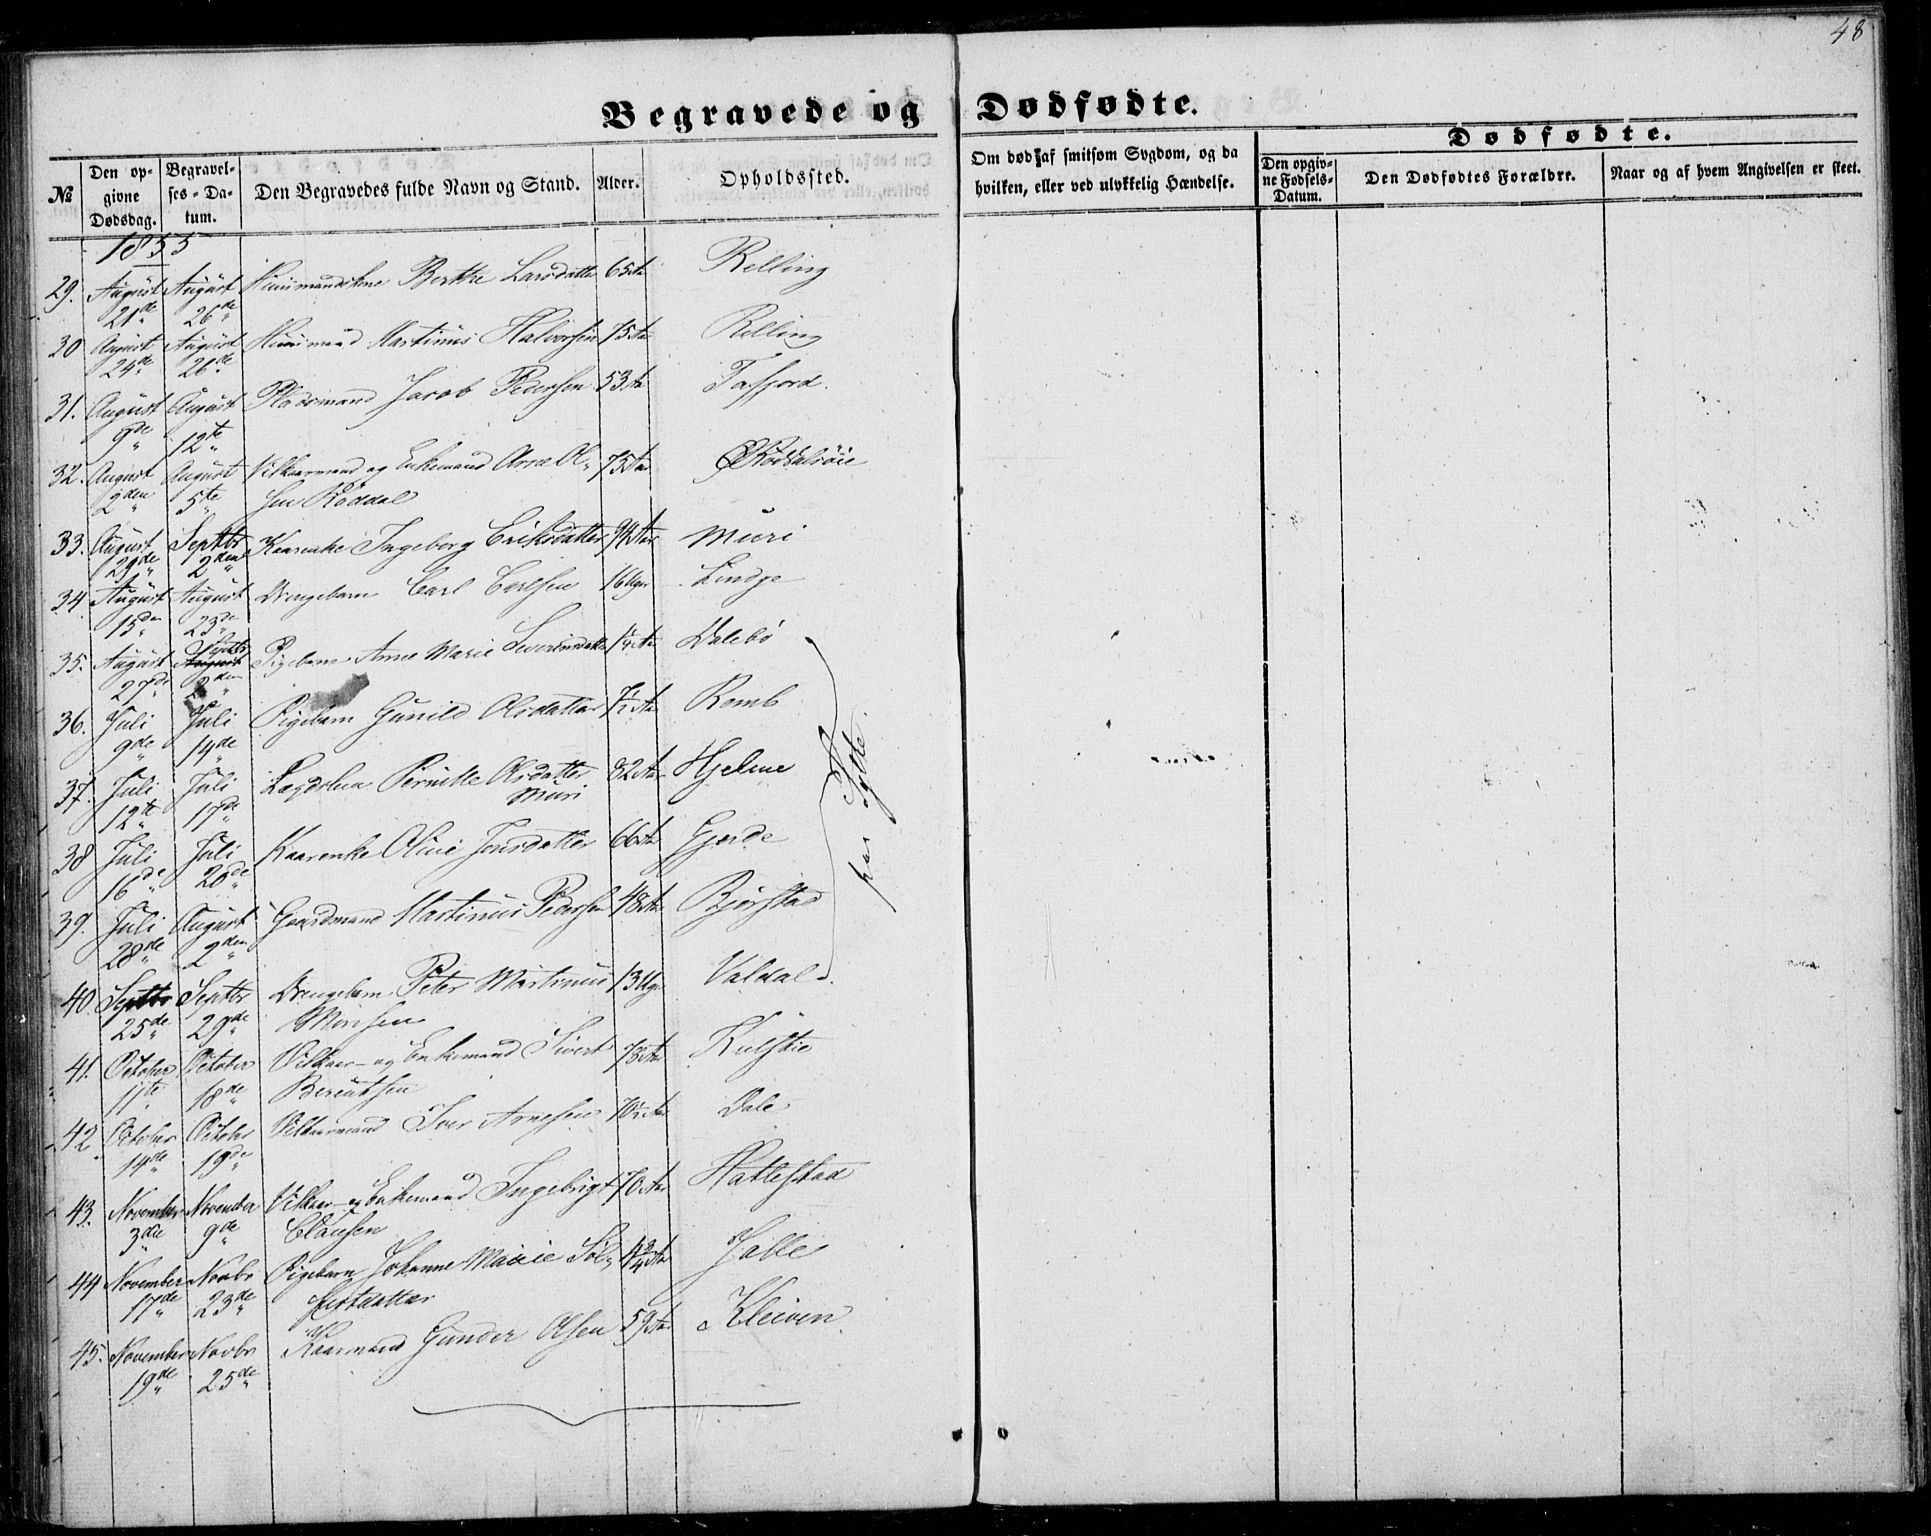 48
Begravede og Dødfødte.
№
Den opgivne Dødsdag.
Begravelses-Datum.
Den Begravedes fulde Navn og Stand.
Alder.
Opholdssted.
Om død af smitsom Sygdom, og da hvilken, eller ved ulykkelig Hændelse.
Dødfødte.
Den opgivne Fødsels-Datum.
Den Dødfødtes Forældre.
Naar og af hvem Angivelsen er skeet.
1855
29. August August Huusmandskone Berthe Larsdatter 65 Aar Relling
21de 26de
30 August August Huusmand Martinus Halvorsen 75 Aar Relling
24de 26de
31. August August Pladsmand Jacob Pedersen 53 Aar Tafjord.
9de 12te
32. August August Vilkaarmand og Enkemand Arne Ol- 75 Aar Røddalsøie
2den 5te sen Røddal
33. August Septbr Kaarenke Ingeborg Eriksdatter Muri
29de 2den
34 August August Drengebarn Carl Carlsen 16 Uger Lindge
15de 23de
35. August Septbr Pigebarn Anne Marie Severinsdatter Dalebø
27de 2den
36. Juli Juli Pigebarn Gunild Olsdatter Romb
9de 14de
37. Juli Juli Lægdslem Pernille Olsdatter 82 Aar Hjelme
12te 17de Muri
38 Juli Juli Kaarenke Oline Jonsdatter 66 Aar Gjerde
16de 20de
39. Juli August Gaardmand Martinus Pedersen 48 Aar Bjørstad
28de 2den
paa Sylte.
40. Septbr Septbr Drengebarn Peter Martinus 13 Uger Valdal
25de 29de Monsen
41. October October Vilkaar- og Enkemand Sivert Kulstie
11te 18de Berentsen
42. October Octobr Vilkaarmand Iver Arnesen 70½ Aar Dale
14de 19de
43. November November Vilkaar- og Enkemand Ingebrigt 70 Aar Hattestad
3die 9de Clausen
44 November Novbr Pigebarn Johanne Marie Søl-
17de 23de festdatter
45. November Novbr Kaarmand Gunder Olsen 59 Aar Kleiven
19de 25de